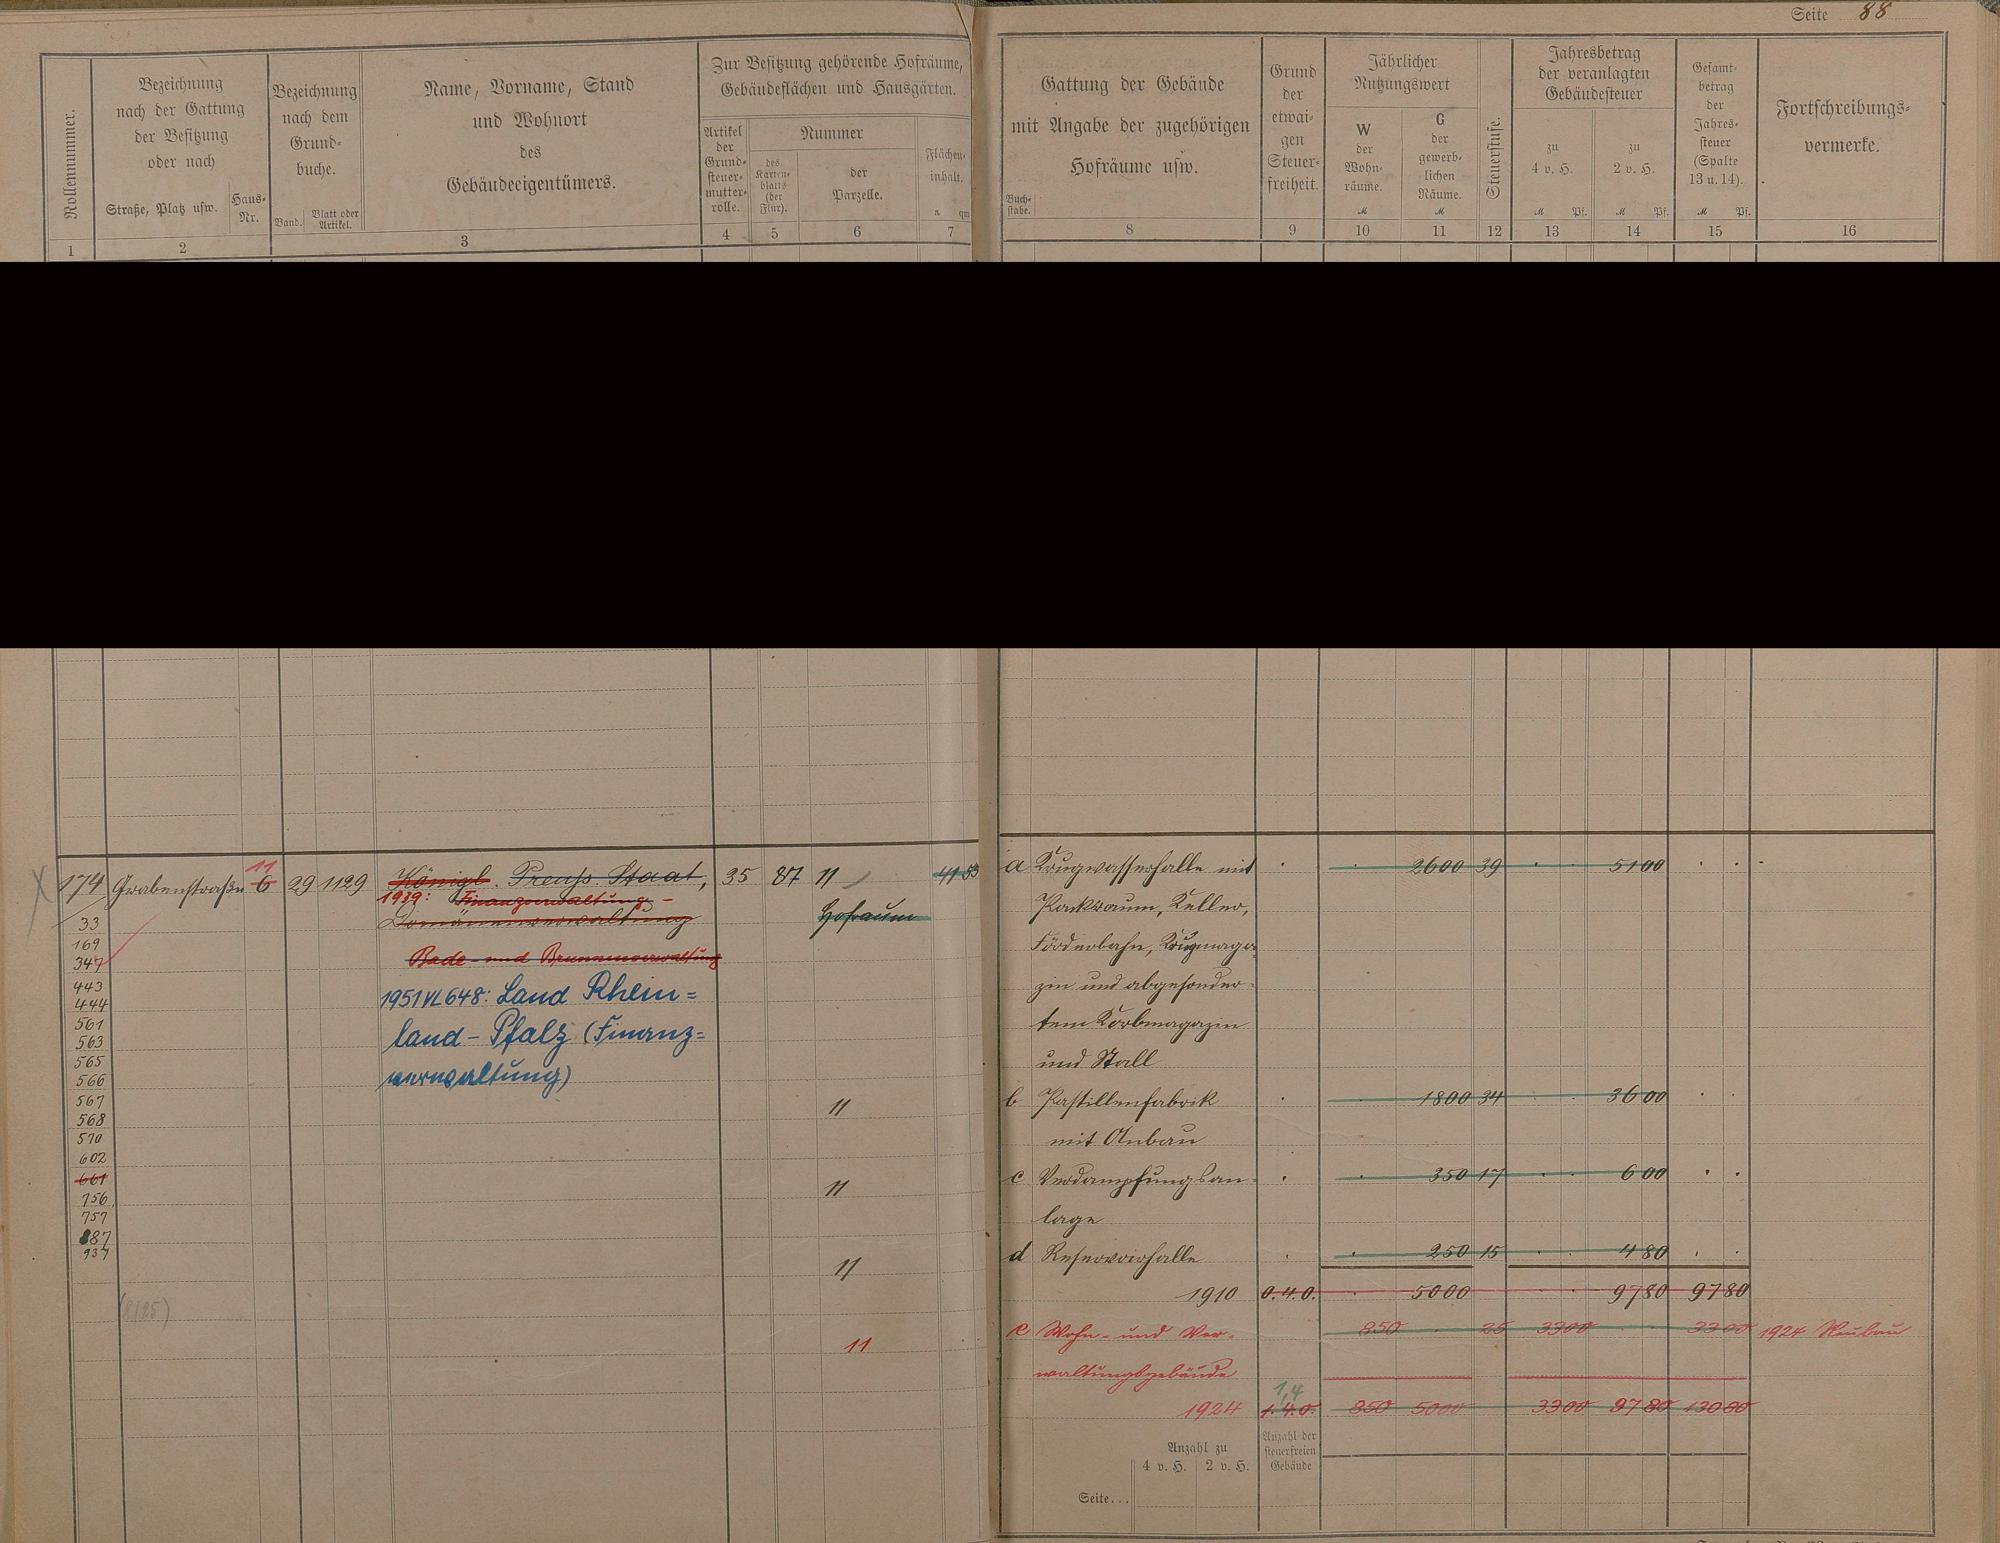 Seite 88
Rollennummer.
Bezeichnung
nach der Gattung
der Besitzung
oder nach
Straße, Platz usw.
Haus-
Nr.
Bezeichnung
nach dem
Grund-
buche.
Band.
Blatt oder
Artikel.
Name, Vorname, Stand
und Wohnort
des
Gebäudeeigentümers.
Zur Besitzung gehörende Hofräume,
Gebäudeflächen und Hausgärten.
Artikel
der
Grund-
steuer-
mutter-
rolle.
Nummer
des
Karten-
blatts
(der
Flur).
der
Parzelle.
Flächen-
inhalt.
a qm
Gattung der Gebäude
mit Angabe der zugehörigen
Hofräume usw.
Buch-
stabe.
Grund
der
etwai-
gen
Steuer-
freiheit.
Jährlicher
Nutzungswert
W
der
Wohn-
räume.
M
G
der
gewerb-
lichen
Räume.
M
Steuerstufe.
Jahresbetrag
der veranlagten
Gebäudesteuer
zu
4 v. H.
M Pf.
zu
2 v. H.
M Pf.
Gesamt-
betrag
der
Jahres-
steuer
(Spalte
13 u. 14).
M Pf.
Fortschreibungs-
vermerke.
1 2 3 4 5 6 7 8 9 10 11 12 13 14 15 16
11
174 Grabenstraße 6 29 1129 Königl. Preuß. Staat, 35 87 11 41 53
1939: Finanzverwaltung -
Domänenverwaltung Hofraum
Bade- und Brunnenverwaltung
1951 VL 648: Land Rhein=
land-Pfalz (Finanz=
verwaltung)
33
169
347
443
444
561
563
565
566
567
568
570
602
661
756
757
887
937
(8125)
11
11
11
11
a Krugwasserhalle mit 2600 39 51 00
Packraum, Keller,
Förderbahn, Krugmaga-
zin und abgesonder-
tem Korbmagazin
und Stall
b Pastillenfabrik 1800 34 36 00
mit Anbau
c Verdampfungsan- 350 17 6 00
lage
d Reservoirhalle 250 15 4 80
1910 0.4.0. 5000 97 80 97 80
e Wohn- und Ver- 850 25 33 00 33 00 1924 Neubau
waltungsgebäude
1,4
1924 1.4.0. 850 5000 33 00 97 80 130 80
Anzahl zu
4 v. H. 2 v. H.
Anzahl der
steuerfreien
Gebäude
Seite...